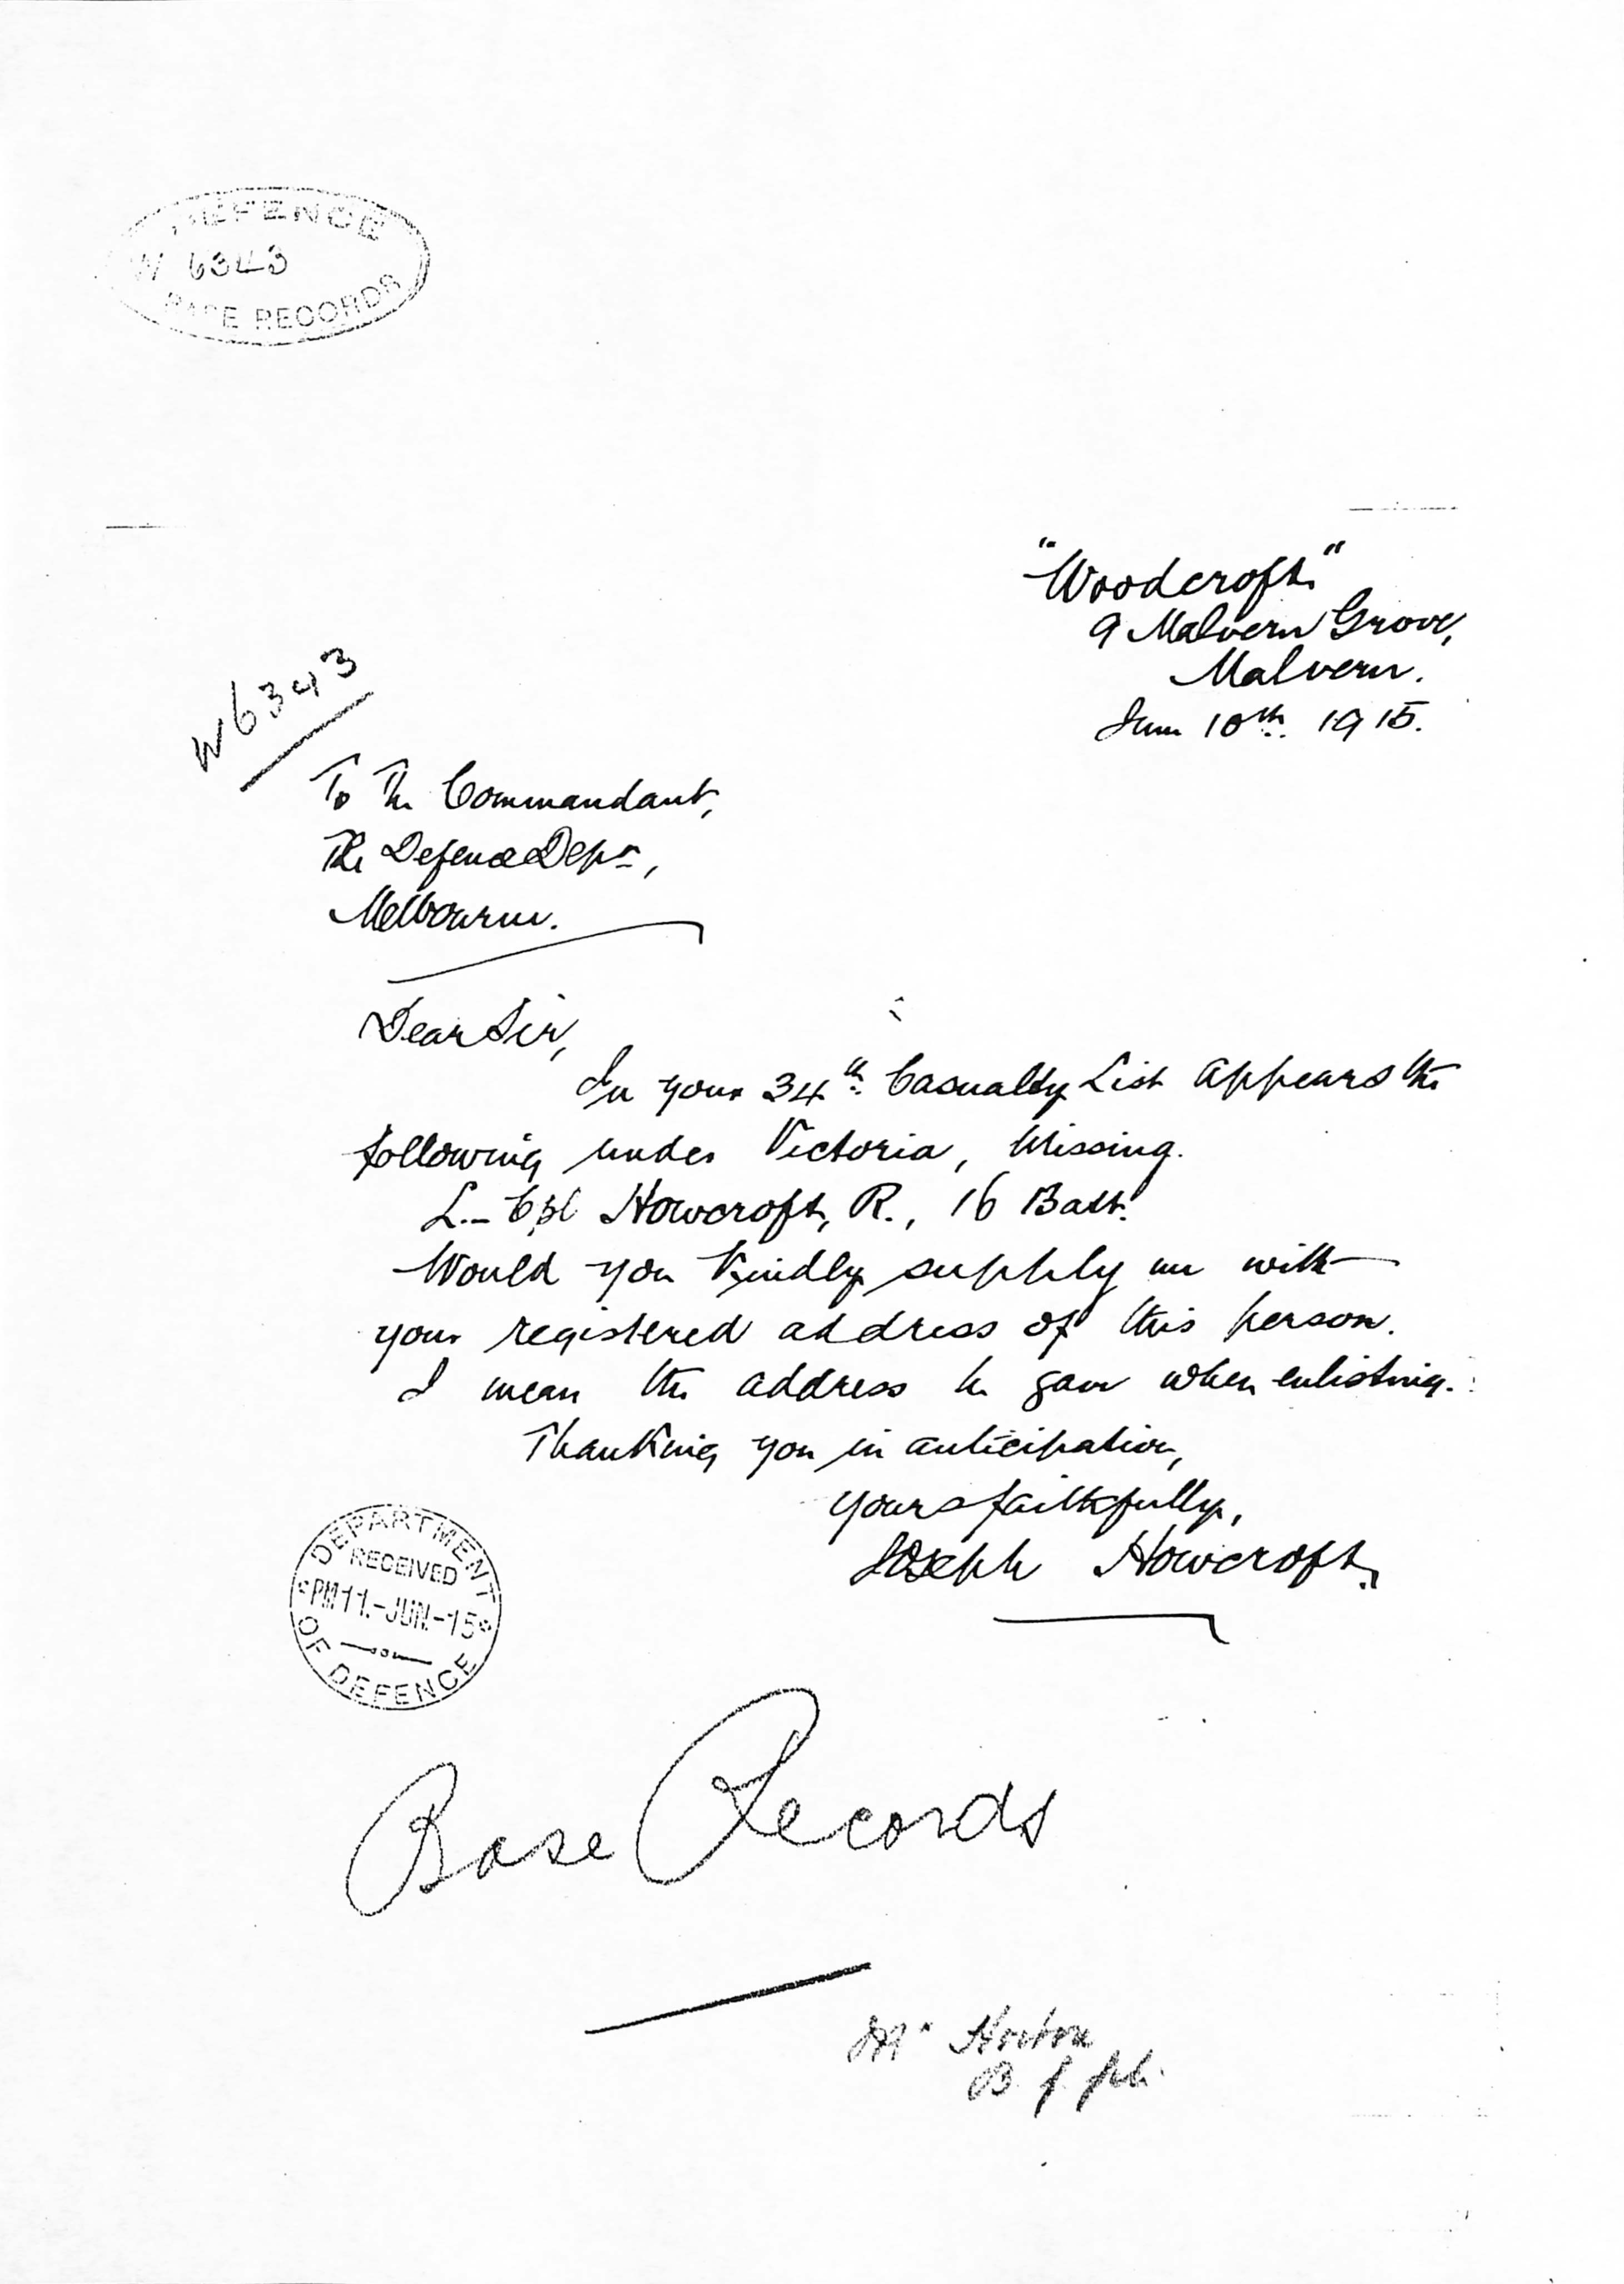 DEFENCE
W 6343
BASE RECORDS
"Woodcroft"
9 Malvern Grove,
Malvern.
June 10th. 1915.
W6343
To The Commandant,
The Defence Dept,
Melbourne.
Dear Sir,
In your 34th Casualty List appears the
following under Victoria, Missing.
L.-Cpl Howcroft, R., 16 Batt.
Would you kindly supply me with
your registered address of this person.
I mean the address he gave when enlisting.
Thanking you in anticipation,
yours faithfully,
Joseph Howcroft.
DEPARTMENT
RECEIVED
PM 11.-JUN.-15
OF DEFENCE
Base Records
Mr Horton